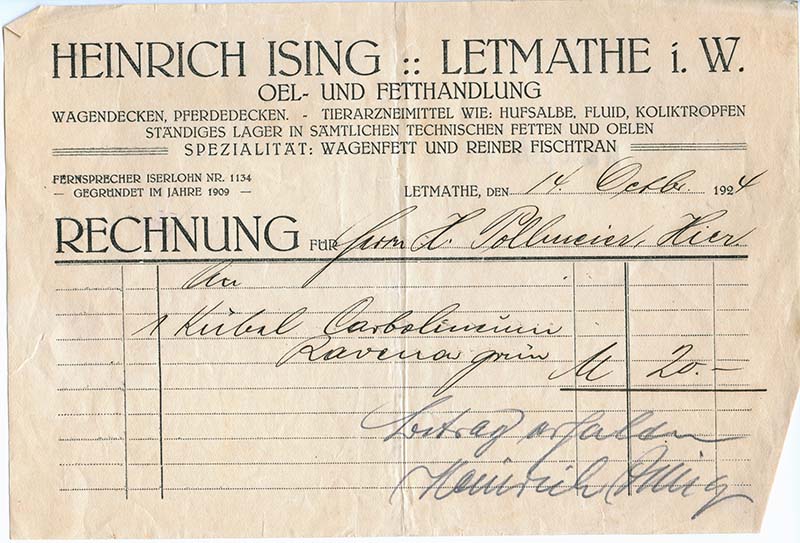 HEINRICH ISING :: LETMATHE i. W.
OEL- UND FETTHANDLUNG
WAGENDECKEN, PFERDEDECKEN. - TIERARZNEIMITTEL WIE: HUFSALBE, FLUID, KOLIKTROPFEN
STÄNDIGES LAGER IN SÄMTLICHEN TECHNISCHEN FETTEN UND OELEN
SPEZIALITÄT: WAGENFETT UND REINER FISCHTRAN
FERNSPRECHER ISERLOHN NR. 1134
— GEGRÜNDET IM JAHRE 1909 —
LETMATHE, DEN 14. Octbr. 1924
RECHNUNG FÜR Herrn H. Pollmeier, Hier.
An
1 Kübel Carbolineum
Ravena grün M 20.-
Betrag erhalten
Heinrich Ising